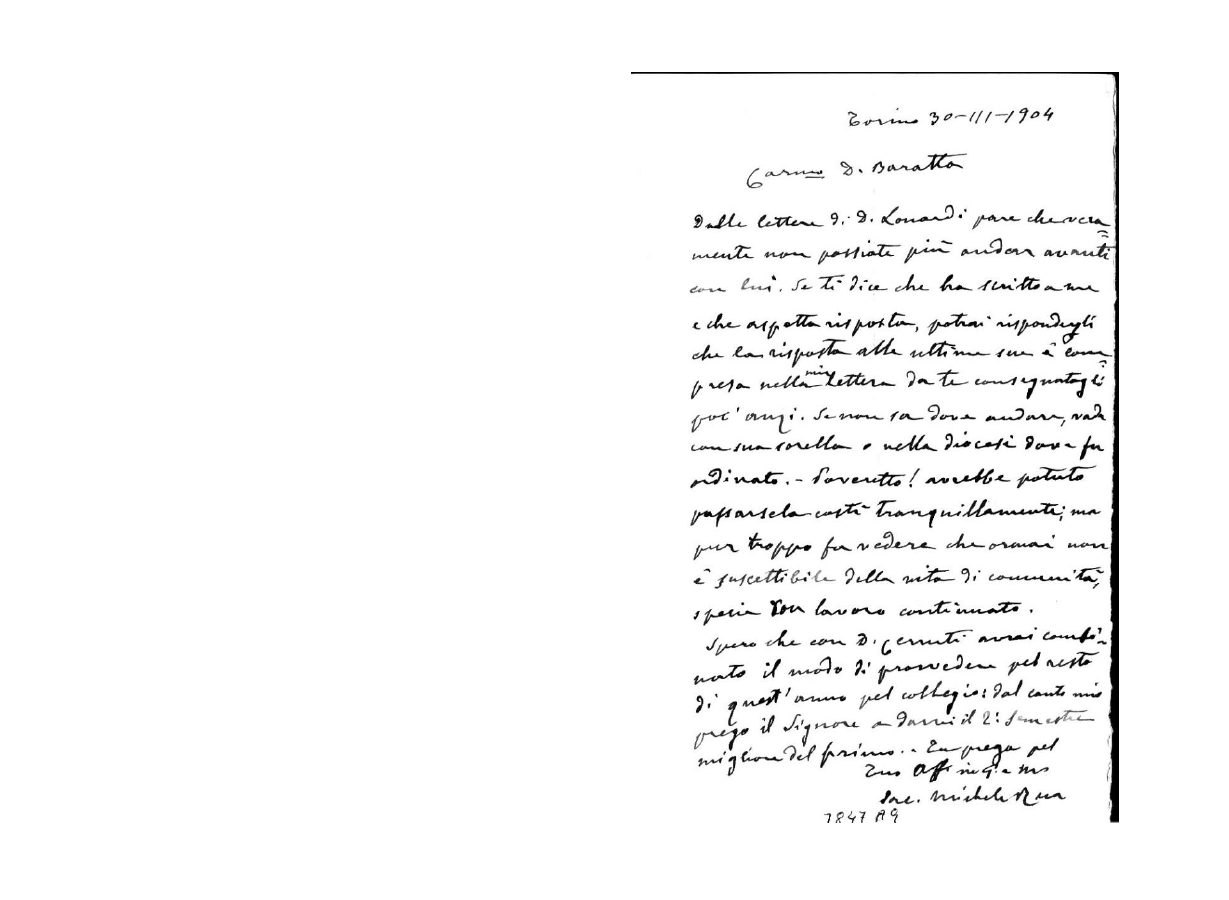 Torino 30-III-1904
Carmo D. Baratta
Dalle lettere di D. Lonardi pare che vera=
mente non possiate più andar avanti
con lui. Se ti dice che ha scritto a me
e che aspetta risposta, potrai rispondergli
che la risposta alle ultime sue è com=
presa nella mia lettera da te consegnatagli
poc'anzi. Se non sa dove andare, vada
con sua sorella o nella diocesi dove fu
ordinato. - Poveretto! avrebbe potuto
passarsela costì tranquillamente; ma
pur troppo fa vedere che oramai non
è suscettibile della vita di comunità,
specie con lavoro continuato.
Spero che con D. Cerruti avrai combi=
nato il modo di provvedere pel resto
di quest'anno pel collegio: dal canto mio
prego il Signore a darvi il 2° semestre
migliore del primo. - Tu prega pel
Tuo Aff in G. e M.
Sac. Michele Rua
7847 A9